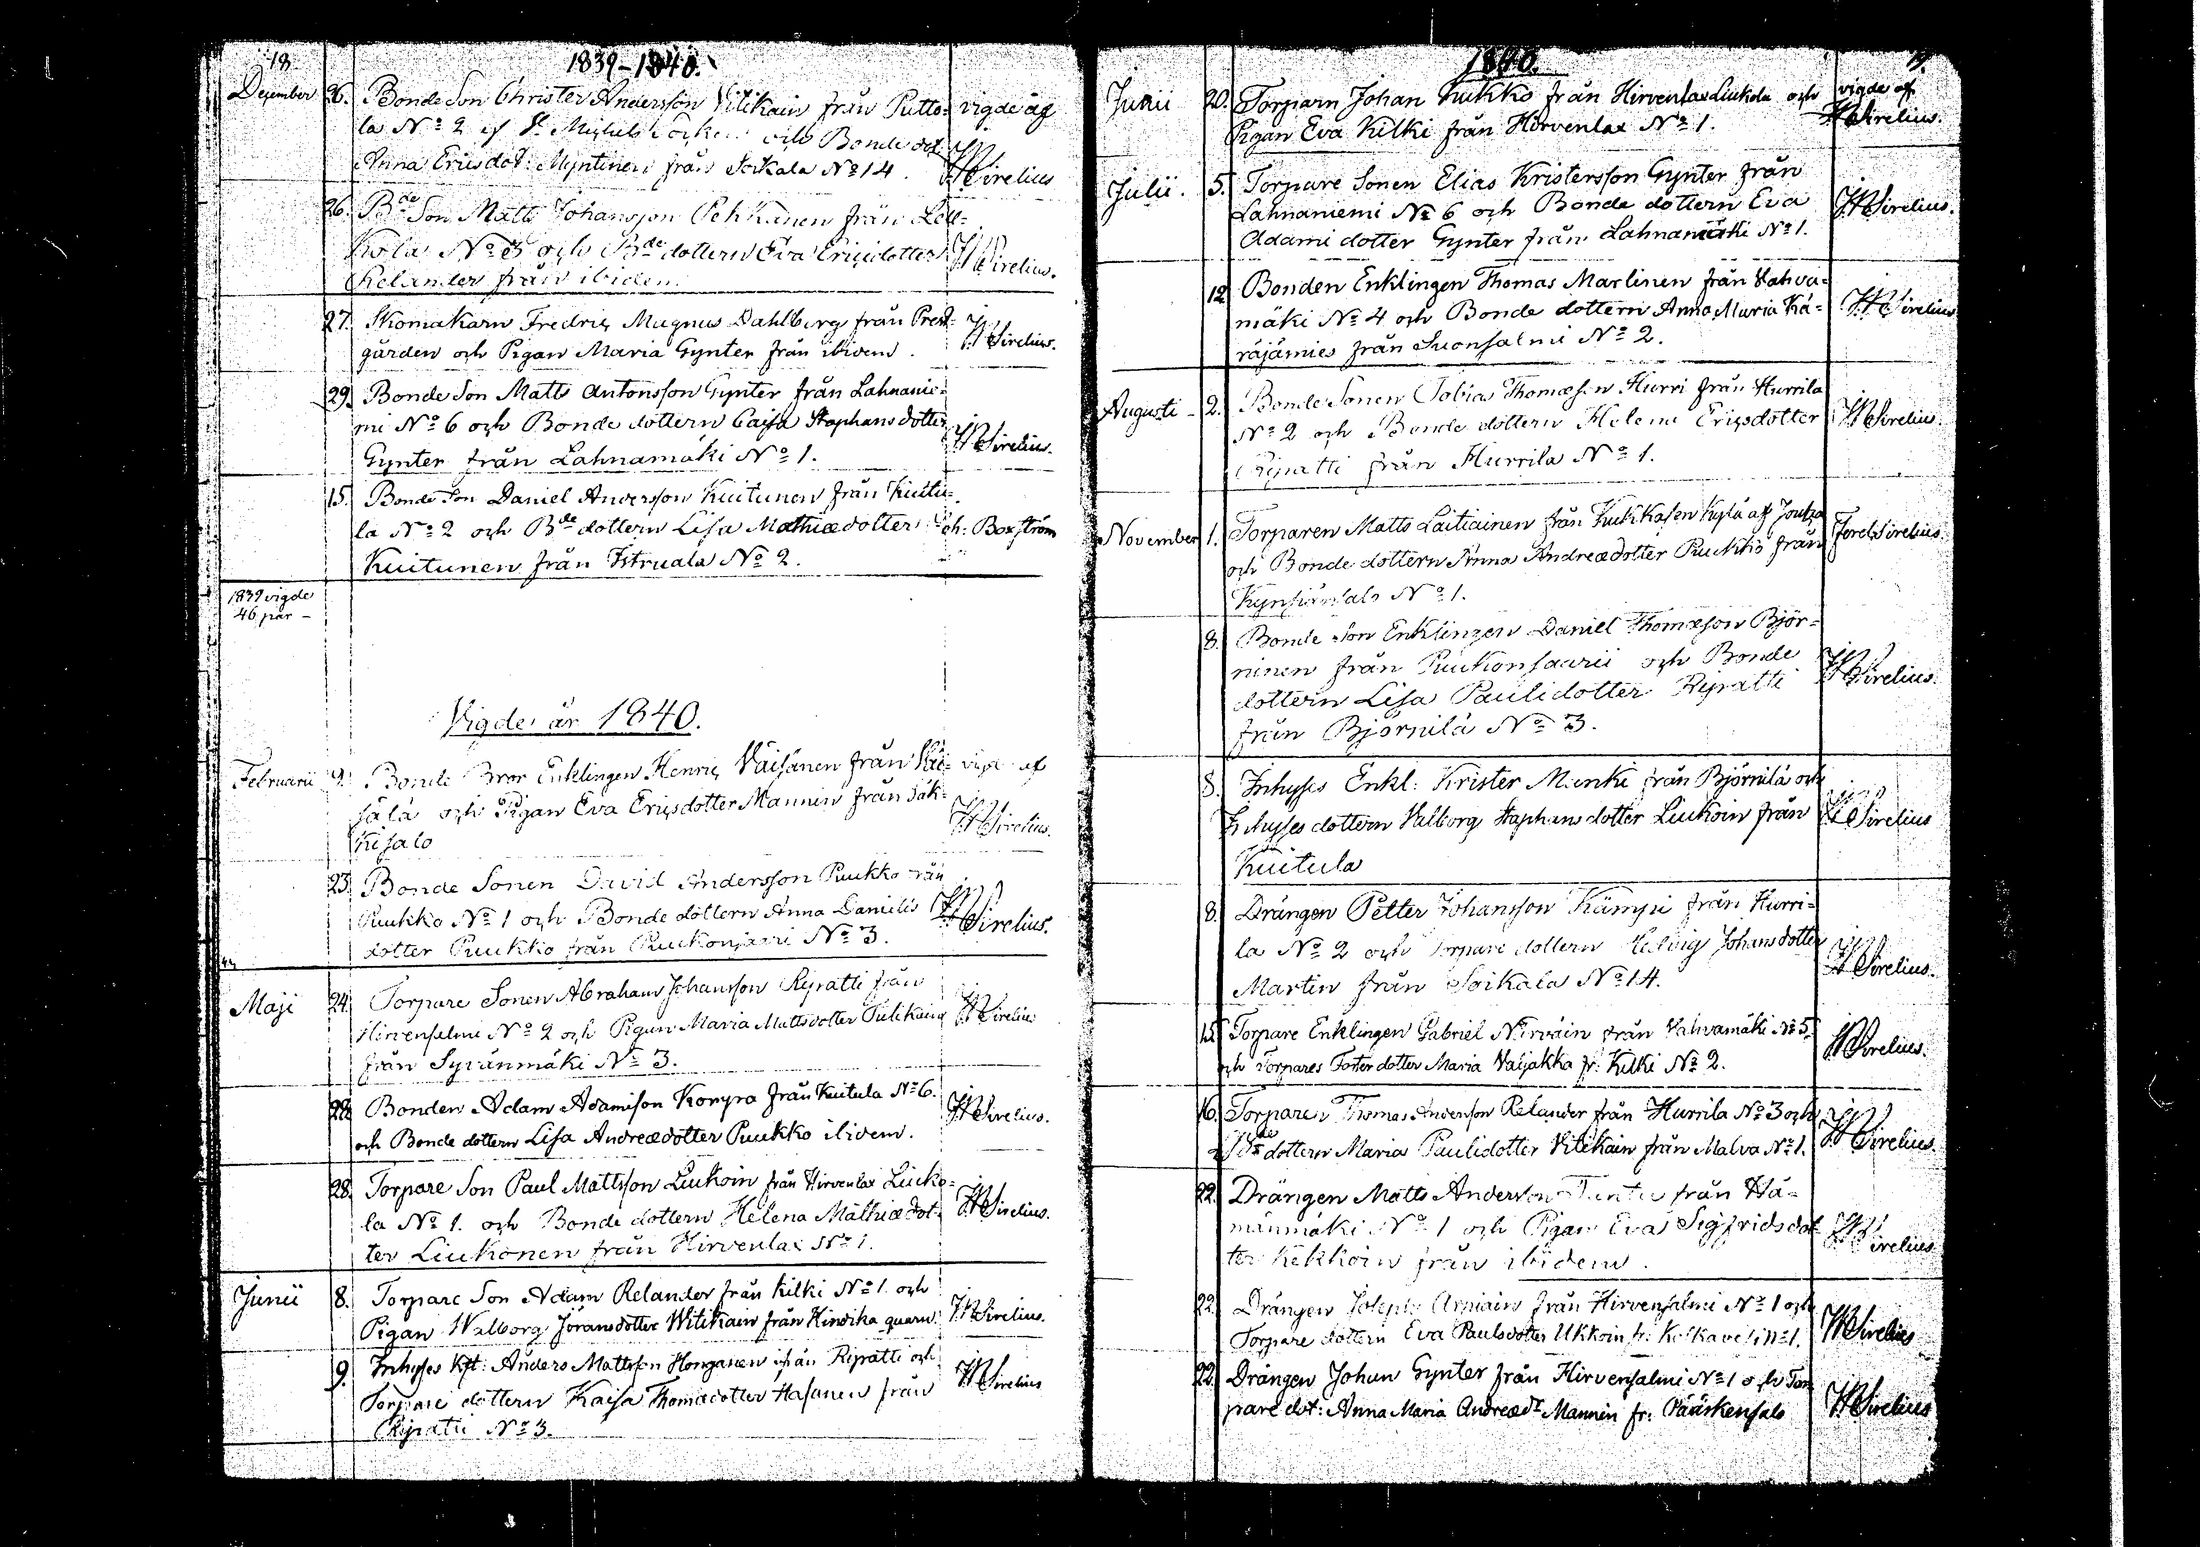 18.
1839-1840.
December 26. Bonde Son Christer Andersson Vitikain från Putto= vigde af
la No 2 af St Michels Socken och Bonde dot:
Anna Ericsdot: Myntinen från Soikala No 14. Sirelius
26. Bde Son Matts Johansson Pekkanen från Lell=
kola No 3 och Bde dottern Eva Ericsdotter Sirelius.
Relander från ibidem.
27. Skomakarn Fredric Magnus Dahlberg från Prest=
gården och Pigan Maria Gynter från ibidem. Sirelius.
29. Bonde Son Matts Antonsson Gynter från Lahnanie=
mi No 6 och Bonde dottern Caisa Staphansdotter
Gynter från Lahnamäki No 1. Sirelius.
15. Bonde Son Daniel Andersson Kuitunen från Kuitu=
la No 2 och Bde dottern Lisa Mathiædotter Joh: Boxström
Kuitunen från Istruala No 2.
1839 vigde
46 par -
Vigde år 1840.
Februarii 9. Bonde Bror Enklingen Henric Väisänen från Väi= vigd af
sälä och Pigan Eva Ericsdotter Mannin från Säk=
kisalo Sirelius.
23. Bonde Sonen David Andersson Puukko från
Puukko No 1 och Bonde dottern Anna Danielis
dotter Puukko från Puukonsaari No 3. Sirelius.
Maji 24. Torpare Sonen Abraham Johansson Ripatti från
Hirvensalmi No 2 och Pigan Maria Mattsdotter Tulikain Sirelius
från Syvänmäki No 3.
28. Bonden Adam Adamisson Korpra från Kuitula No 6.
och Bonde dottern Lisa Andreædotter Puukko ibidem. Sirelius.
28. Torpare Son Paul Mattsson Liukoin från Hirvenlax Liuko=
la No 1. och Bonde dottern Helena Mathiædot= Sirelius.
ter Liukonen från Hirvenlax No 1.
Junii 8. Torpare Son Adam Relander från Kilki No 1 och
Pigan Walborg Jöransdotter Witikain från Hindika quarn. Sirelius.
9. Inhyses Kst: Anders Mattsson Hongasen från Ripatti och
Torpare dottern Kaisa Thomædotter Hasanen från Sirelius
Ripatti No 3.
1840.
19.
Junii 20. Torparn Johan Liukko från Hirvenlax Liukola och vigde af
Pigan Eva Kilki från Hirvenlax No 1. Sirelius.
Julii. 5. Torpare Sonen Elias Kristersson Gynter från
Lahnaniemi No 6 och Bonde dottern Eva Sirelius.
Adami dotter Gynter från Lahnamäki No 1.
12. Bonden Enklingen Thomas Marlinen från Vahva=
mäki No 4 och Bonde dottern Anna Maria Kä= Sirelius
räjämies från Suonsalmi No 2.
Augusti - 2. Bonde Sonen Tobias Thomæson Hurri från Hurrila
No 2 och Bonde dottern Helena Ericsdotter Sirelius.
Ripatti från Hurrila No 1.
November 1. Torparen Matts Laitiainen från Kukkasen Kylä af Joutsa
och Bonde dottern Anna Andreædotter Puukko från Sirelius.
Kynsiänsalo No 1.
8. Bonde Son Enklingen Daniel Thomæson Björ=
ninen från Puukonsaari och Bonde
dottern Lisa Paulidotter Ripatti Sirelius.
från Björnilä No 3.
8. Inhyses Enkl: Krister Minki från Björnilä och
Inhyses dottern Valborg Staphansdotter Liukoin från Sirelius
Kuitula
8. Drängen Petter Johansson Kämpi från Hurri=
la No 2 och Torpare dottern Hedvig Johansdotter
Martin från Soikala No 14. Sirelius.
15. Torpare Enklingen Gabriel Nirväin från Vahvamäki No 5
och Torpares Foster dotter Maria Valjakka fr: Kilki No 2. Sirelius.
16. Torparen Thomas Andersson Relander från Hurrila No 3 och
Bde dottern Maria Paulidotter Vitikain från Malva No 1. Sirelius.
22. Drängen Matts Andersson från Hä=
mänmäki No 1 och Pigan Eva Sigfridsdot=
ter Kekkoin från ibidem. Sirelius
22. Drängen Joseph Arniain från Hirvensalmi No 1 och
Torpare dottern Eva Paulsdotter Ukkoin fr: Kolkavesi No 1. Sirelius
22. Drängen Johan Gynter från Hirvensalmi No 1 och Tor
pare dot: Anna Maria Andreædr Mannin fr: Pääskensalo Sirelius